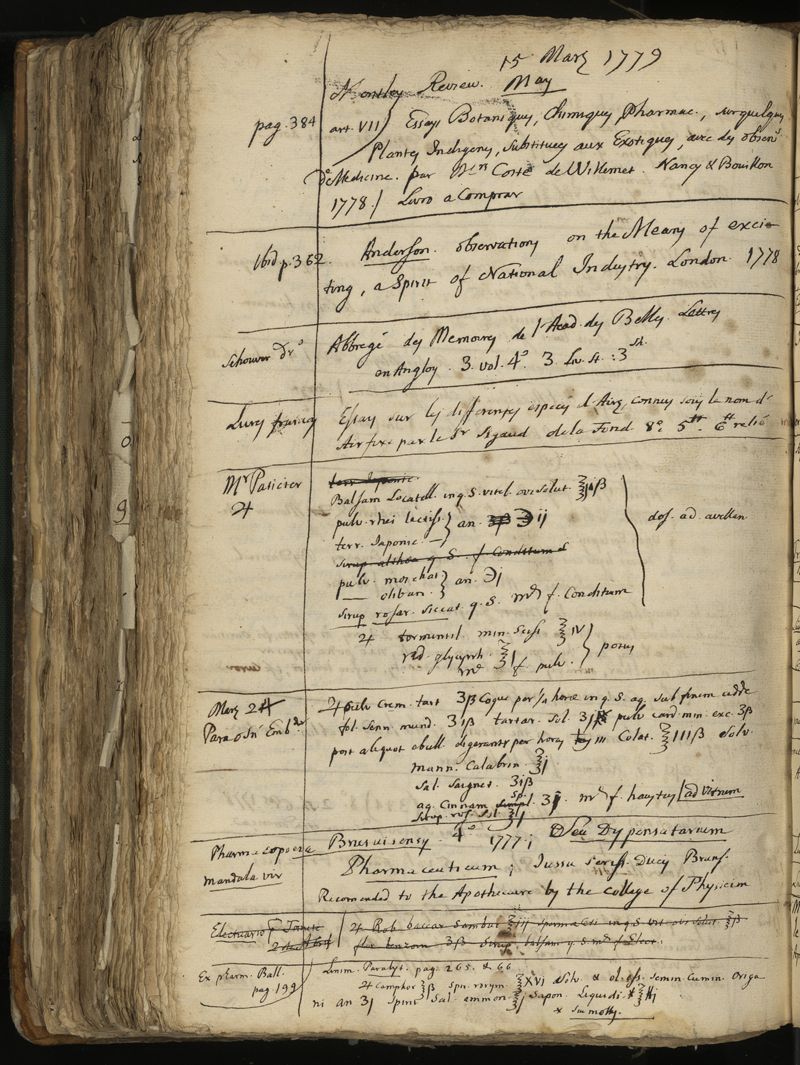 15 Marz 1779
Monthly Review. May
pag. 384 art. VII) Essays Botaniques, Chimiques Pharmac., sur quelques
Plantes Indigenes, substituees aux Exotiques, avec des observ.s
de Medicine. par Mrs Coste de Willemet. Nancy & Bouillon
1778./ Livro a Comprar
Ibid p. 362. Anderson. observations on the Means of exci-
ting, a Spirit of National Industry. London 1778
Schouwer Dro Abbregé des Memoires de l'Acad. des Belles Lettres
en Anglois. 3. vol. 4o. 3. Liv. St. : 3 sh.
Essay sur les differentes especes d'Air, connues sous le nom d'
Air fixe par le Sr Sigaud de la Fond 8o. 5 tt 6 tt relié
Mr
♃
terr Japonic.
Balsam Locatell. in q. S. vitel. ovi solut. ℥jβ
pulv. rhei lectiss.} an. ij
terr. Japonic. —
dos. ad. avellan
sirup althea q S. f Conditum
pulv. moschat} an. ℈j
— oliban.
sirup rosar. siccat. q. S. M f. Conditum
♃ tormentil. min. sciss ℥IV
rad. glycyrrh. ℥j } potus
M f pulv.
Marz 24
Para o Snr Embdr
♃ Pulv Crem. tart ʒβ Coque per 1/2 horæ in q. S. aq. sub finem adde
fol. Senn mund. ʒiβ tartar. Sol. ʒj pulv card. min. exc. ʒβ
post aliquot ebull. digerantr per horas iij Colat. ℥IIIβ Solv.
Mann. Calabrin. ℥j
Sal. Saignet. ʒiβ
aq. Cinnam Sp. ʒj. M f. haustus ad vitrum
Sirup. ros. Sol. ℥j
Pharmacopoeia Brunsuicensis. 4o 1777; Seu Dispensatorium
mandala vir Pharmaceuticum; Jussu Seriss. Ducis Brunsf.
Recomended to the Apothecare by the college of Physician
Electuario ♃ Rob baccar Sambuc ℥iij sperma Ceti in q S vit ovi solut ℥β
flor benzoin ʒβ Sirup. balsam q S M f Elect.
Ex pharm. Ball. Linim. Paralyt. pag. 265. & 66.
pag 199 ♃ Camphor ℥β Spir. rorism. ℥XVI Solv. & ol. ess. semin. Cumin. Origa
ni an ʒj Spirit Sal ammon. ℥j Sapon. Liquidi * ℥j
* Sive mollis.